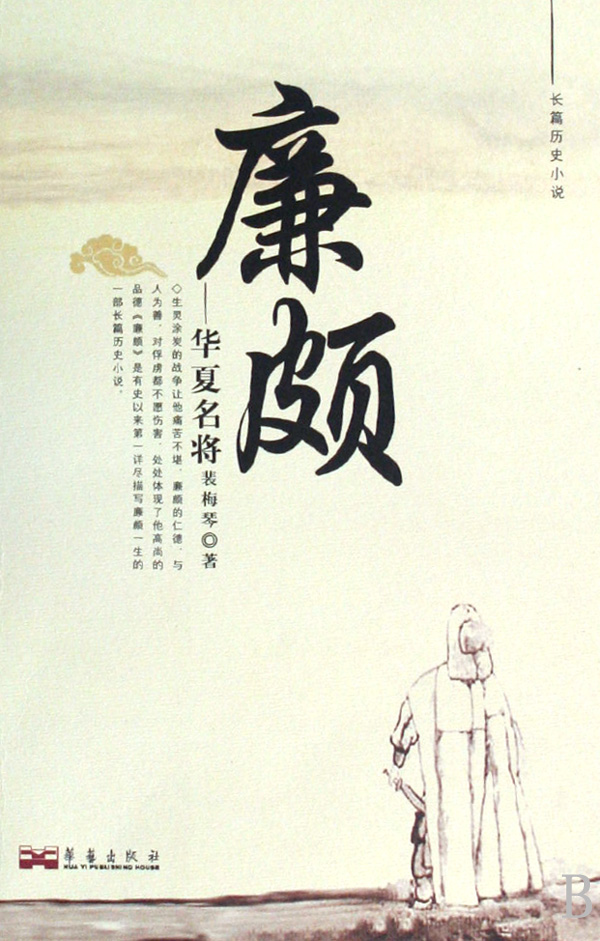 长篇历史小说
廉颇
——华夏名将
裴梅琴◎著
◇生灵涂炭的战争让他痛苦不堪，廉颇的仁德，与
人为善，对俘虏都不愿伤害，处处体现了他高尚的
品德《廉颇》是有史以来第一详尽描写廉颇一生的
一部长篇历史小说。
華藝出版社
HUA YI PUBLISHING HOUSE
B